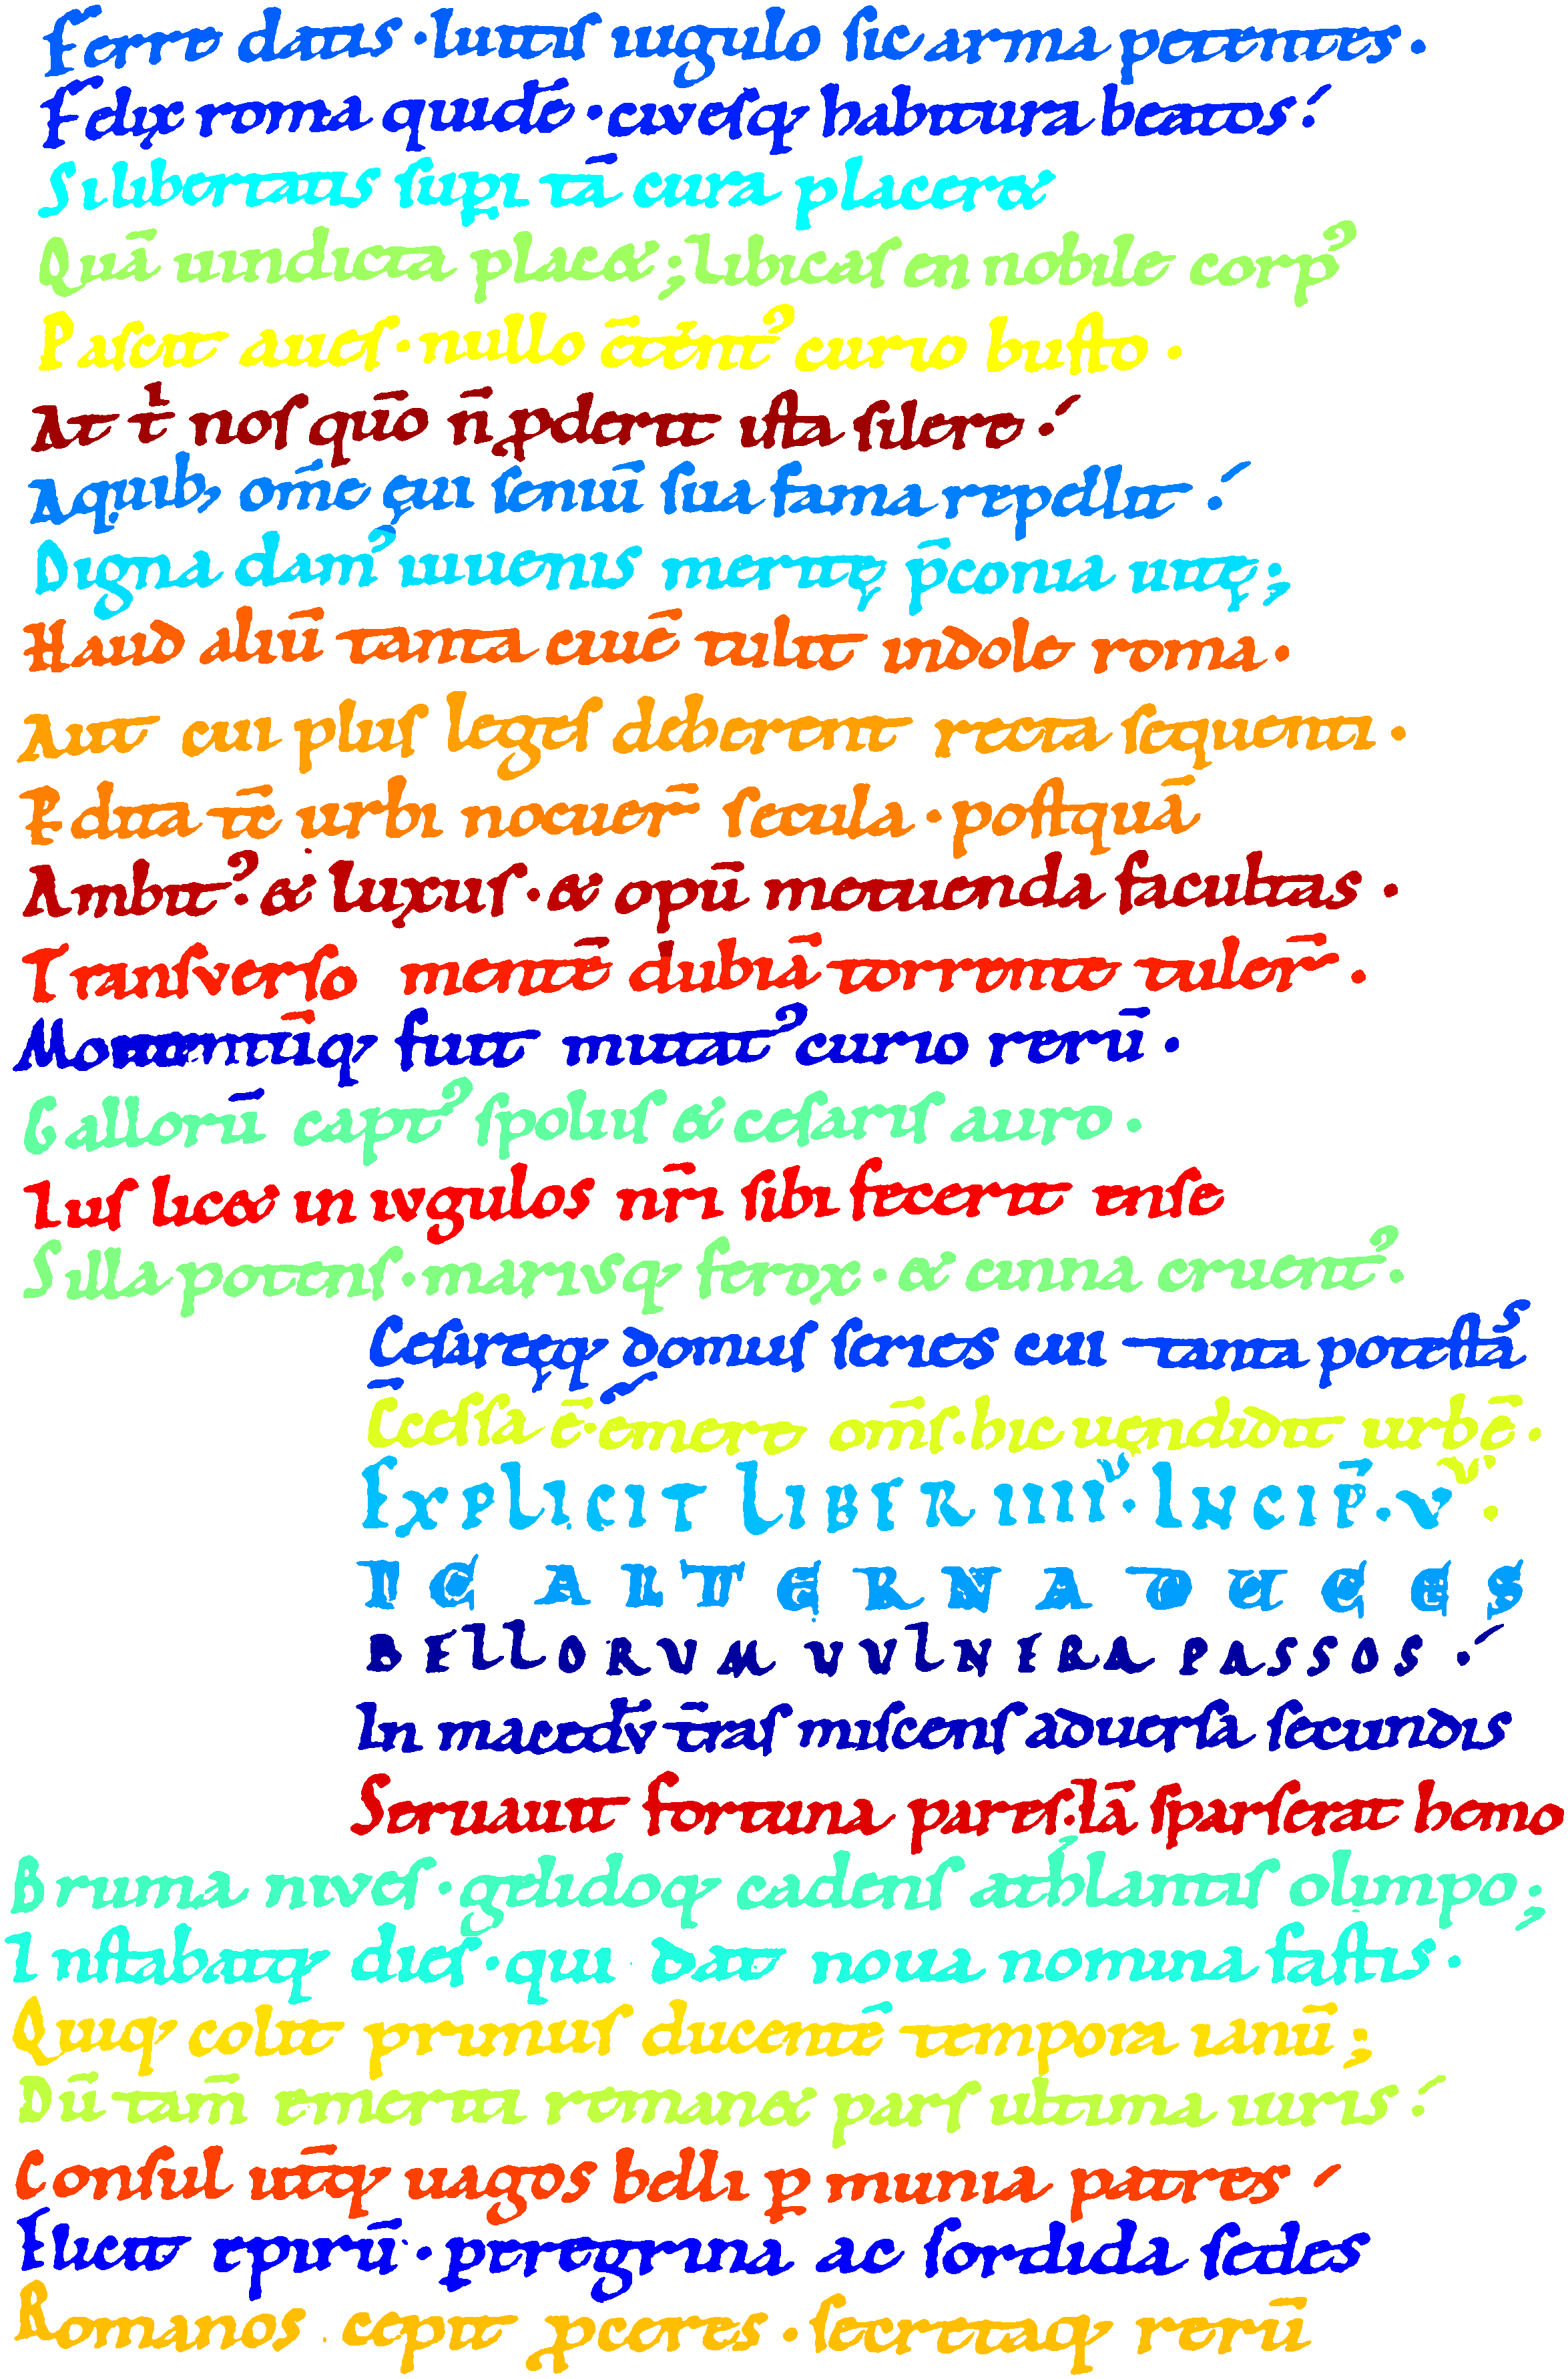 Ferro datis · luitis iugulo sic arma petentes ·
Felix roma quidē · civesq; habitura beatos ؛
Si libertatis supi tā cura placeret
Quā uindicta placet ; Libicas en nobile corp᾿
Pascit aues · nullo c̄tēnt᾿ curio busto ·
At t̄ nos qn̄o n̄ ꝓderit ista silere ؛
Aquib; om̄e qui seniū sua fama repellit ؛
Digna dam᾿ iuuenis meritę p̄conia uitę ;
Haud aliū tanta ciuē tulit indole roma ·
Aut cui plus leges deberent recta sequenti ·
Perdita tc̄ urbi nocuer̄ secula · postquā
Ambit᾿ & luxus · & opū metuenda facultas ·
Transverso mentē dubiā torrente tuler̄ ·
Momentūq; fuit mutat᾿ curio rerū ·
Gallorū capt᾿ spoliis & cesaris auro ·
Ius licet in iugulos nr̄i sibi fecerit ense
Silla potens · mariusq; ferox · & cinna cruent᾿ ·
Cesareęq; domus series cui tanta potestas
C̄cessa ē · emere om̄s · hic uendidit urbē ·
EXPLICIT LIBER IIII · INCIP̄ · V ·
IC ALTERNA DUCES
BELLORVM VVLNERA PASSOS ؛
In macedv̄ t̄ras miscens aduersa secundis
Seruauit fortuna pares · Iā sparserat hemo
Bruma nives · gelidoq; cadens athlantis olimpo ;
Instabatq; dies · qui dat noua nomina fastis ·
Quiq; colit primus ducentē tempora ianū ;
Dū tam̄ emeriti remanet pars ultima iuris ؛
Consul ut̄q; uagos belli ꝑ munia patres ؛
Elicit epirū · peregrina ac sordida sedes
Romanos cepit ꝓceres · secretaq; rerū